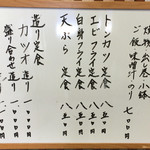 焼物 出し巻 小鉢
ご飯 味噌汁 のり 七〇〇円
トンカツ定食 八五〇円
エビフライ定食 八五〇円
白身フライ定食 八五〇円
天ぷら定食 八五〇円
造り定食
カツオ造り 一
盛り合わせ造り 一